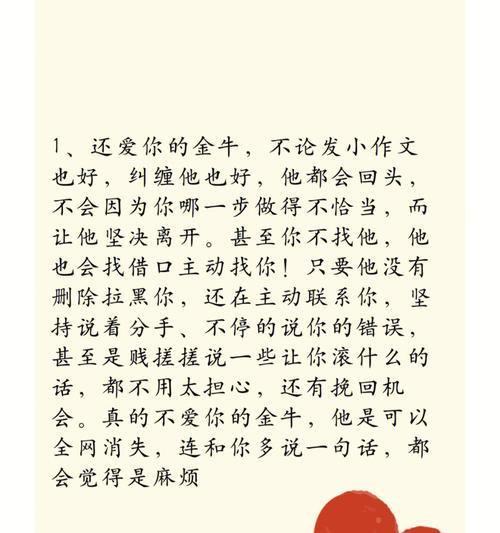 1、还爱你的金牛，不论发小作文
也好，纠缠他也好，他都会回头，
不会因为你哪一步做得不恰当，而
让他坚决离开。甚至你不找他，他
也会找借口主动找你！只要他没有
删除拉黑你，还在主动联系你，坚
持说着分手、不停的说你的错误，
甚至是贱搓搓说一些让你滚什么的
话，都不用太担心，还有挽回机
会。真的不爱你的金牛，他是可以
全网消失，连和你多说一句话，都
会觉得是麻烦